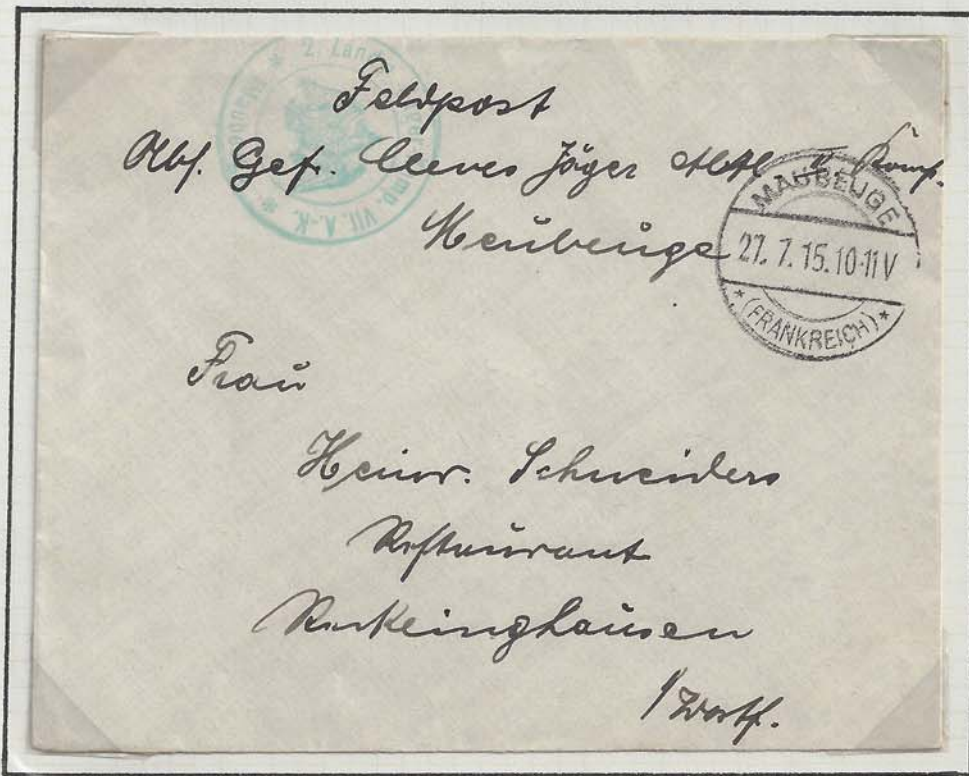 Feldpost
Abs. Gefr. Cleves Jäger Abtl. II Komp.
Meubeuge
2. Land VII. A.-K.
MAUBEUGE
27. 7. 15. 10-11 V
* (FRANKREICH) *
Frau
Heinr. Schneiders
Restaurant
Reckeinghausen
i/Westf.